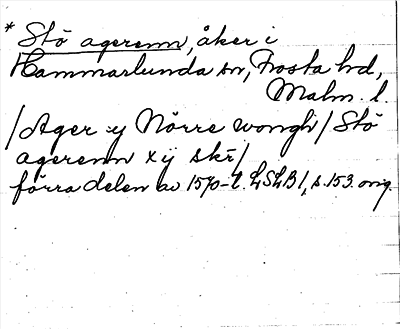 * Stö agerenn, åker i
Hammarlunda sn, Frosta hd,
Malm. l.
/Ager y Nörre wongh/ Stö
agerenn x ij skr/
förra delen av 1570-t. LSLB1, s. 153. orig.